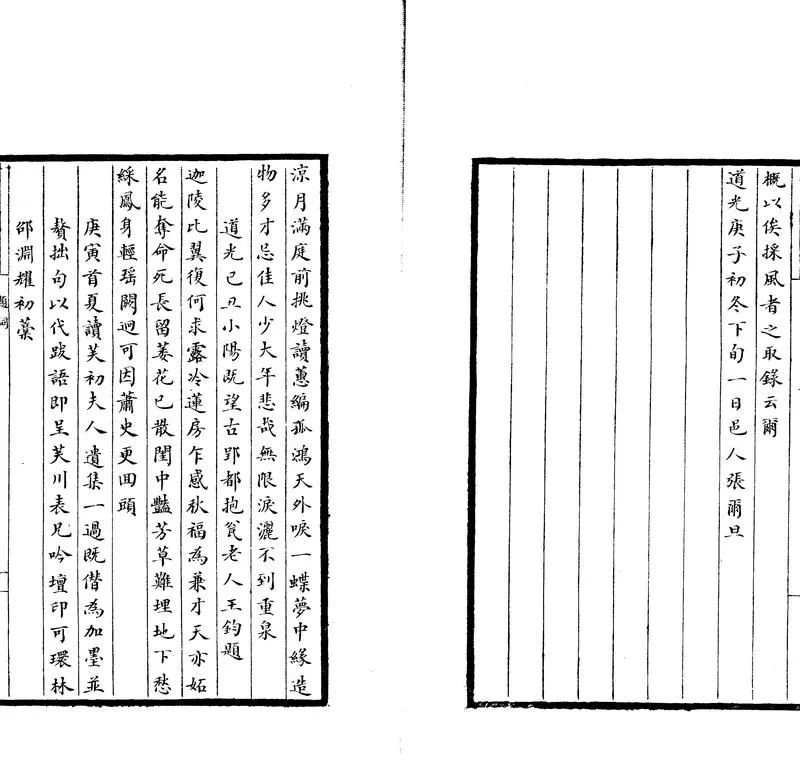 概以俟採風者之取錄云爾
道光庚子初冬下旬一日邑人張爾旦
涼月滿庭前挑燈讀蕙編孤鴻天外唳一蝶夢中緣造
物多才忌佳人少大年悲哉無限淚灑不到重泉
道光己丑小陽既望古郢都抱瓮老人王鈞題
迦陵比翼復何求露冷蓮房乍感秋福為兼才天亦妬
名能奪命死長留萎花已散閨中豔芳草難埋地下愁
綵鳳身輕瑤闕迥可因蕭史更回頭
庚寅首夏讀芙初夫人遺集一過既僭為加墨並
贅拙句以代跋語即呈芙川表兄吟壇印可環林
邵淵耀初藁
題詞